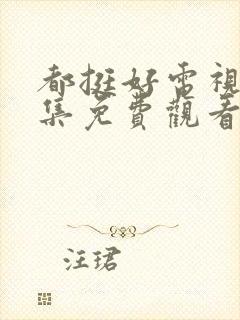 都挺好電視
集免費觀看
汪珺